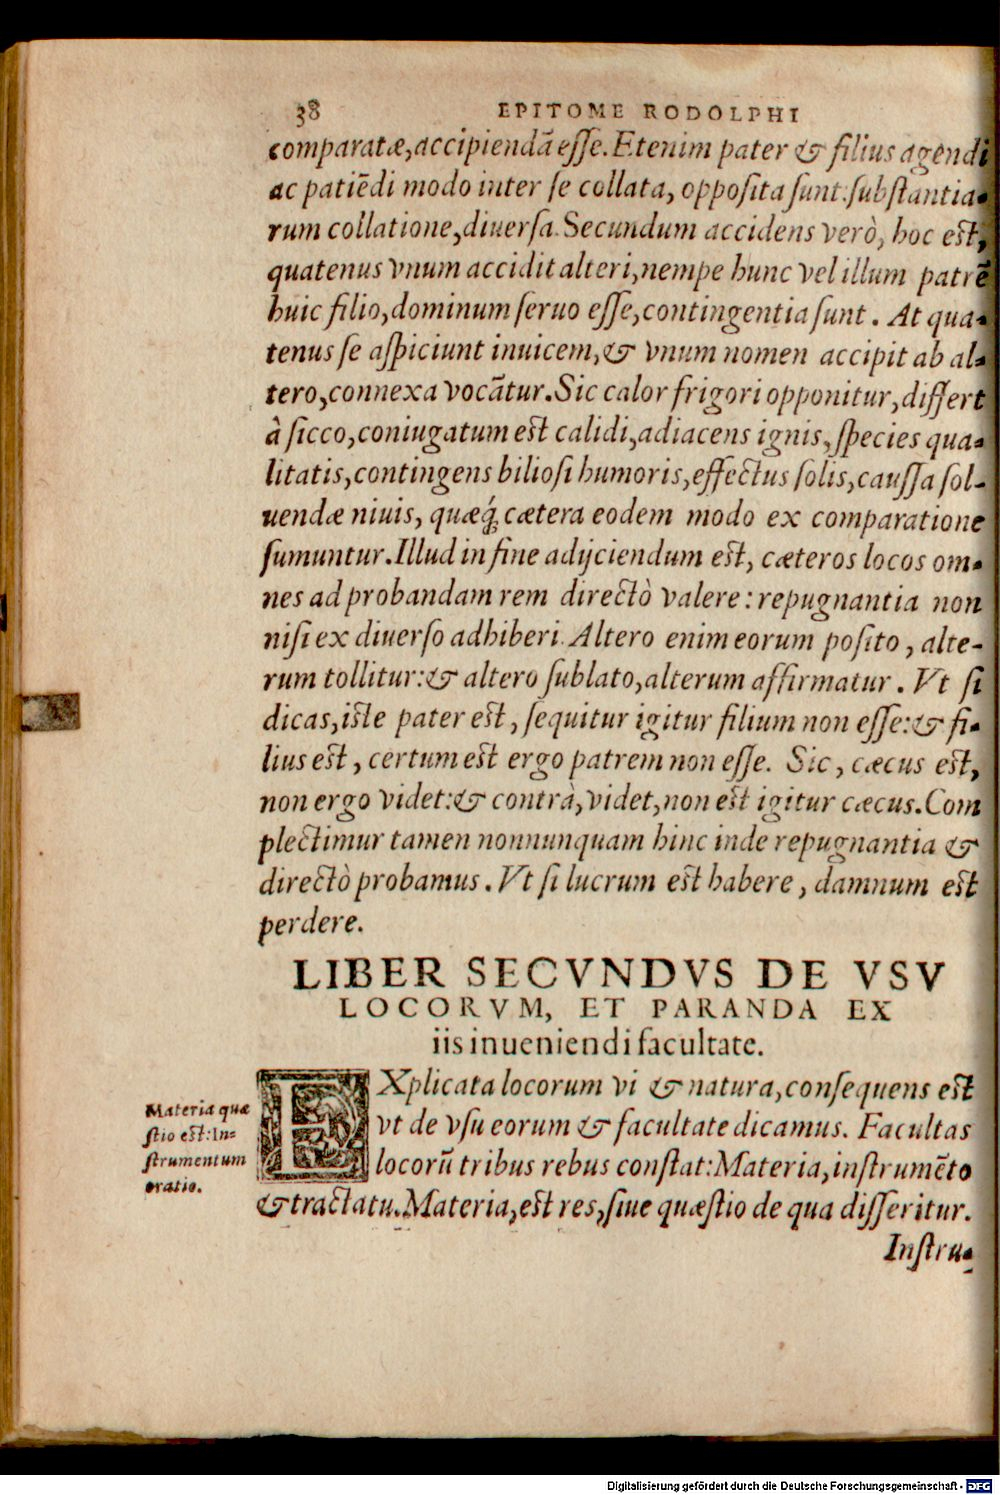 38 EPITOME RODOLPHI
comparatæ, accipiendā esse. Etenim pater & filius agendi
ac patiēdi modo inter se collata, opposita sunt: substantia-
rum collatione, diuersa. Secundum accidens verò, hoc est,
quatenus vnum accidit alteri, nempe hunc vel illum patrē
huic filio, dominum seruo esse, contingentia sunt. At qua-
tenus se aspiciunt inuicem, & vnum nomen accipit ab al-
tero, connexa vocātur. Sic calor frigori opponitur, differt
à sicco, coniugatum est calidi, adiacens ignis, species qua-
litatis, contingens biliosi humoris, effectus solis, caussa sol-
uendæ niuis, quæq́; cætera eodem modo ex comparatione
sumuntur. Illud in fine adijciendum est, cæteros locos om-
nes ad probandam rem directò valere: repugnantia non
nisi ex diuerso adhiberi. Altero enim eorum posito, alte-
rum tollitur: & altero sublato, alterum affirmatur. Vt si
dicas, iste pater est, sequitur igitur filium non esse: & fi-
lius est, certum est ergo patrem non esse. Sic, cæcus est,
non ergo videt: & contrà, videt, non est igitur cæcus. Com
plectimur tamen nonnunquam hinc inde repugnantia &
directò probamus. Vt si lucrum est habere, damnum est
perdere.
LIBER SECVNDVS DE VSV
LOCORVM, ET PARANDA EX
iis inueniendi facultate.
EXplicata locorum vi & natura, consequens est
vt de vsu eorum & facultate dicamus. Facultas
locorū tribus rebus constat: Materia, instrumēto
& tractatu. Materia, est res, siue quæstio de qua disseritur.
Instru-
Materia quæ
stio est: In-
strumentum
oratio.
Digitalisierung gefördert durch die Deutsche Forschungsgemeinschaft - DFG